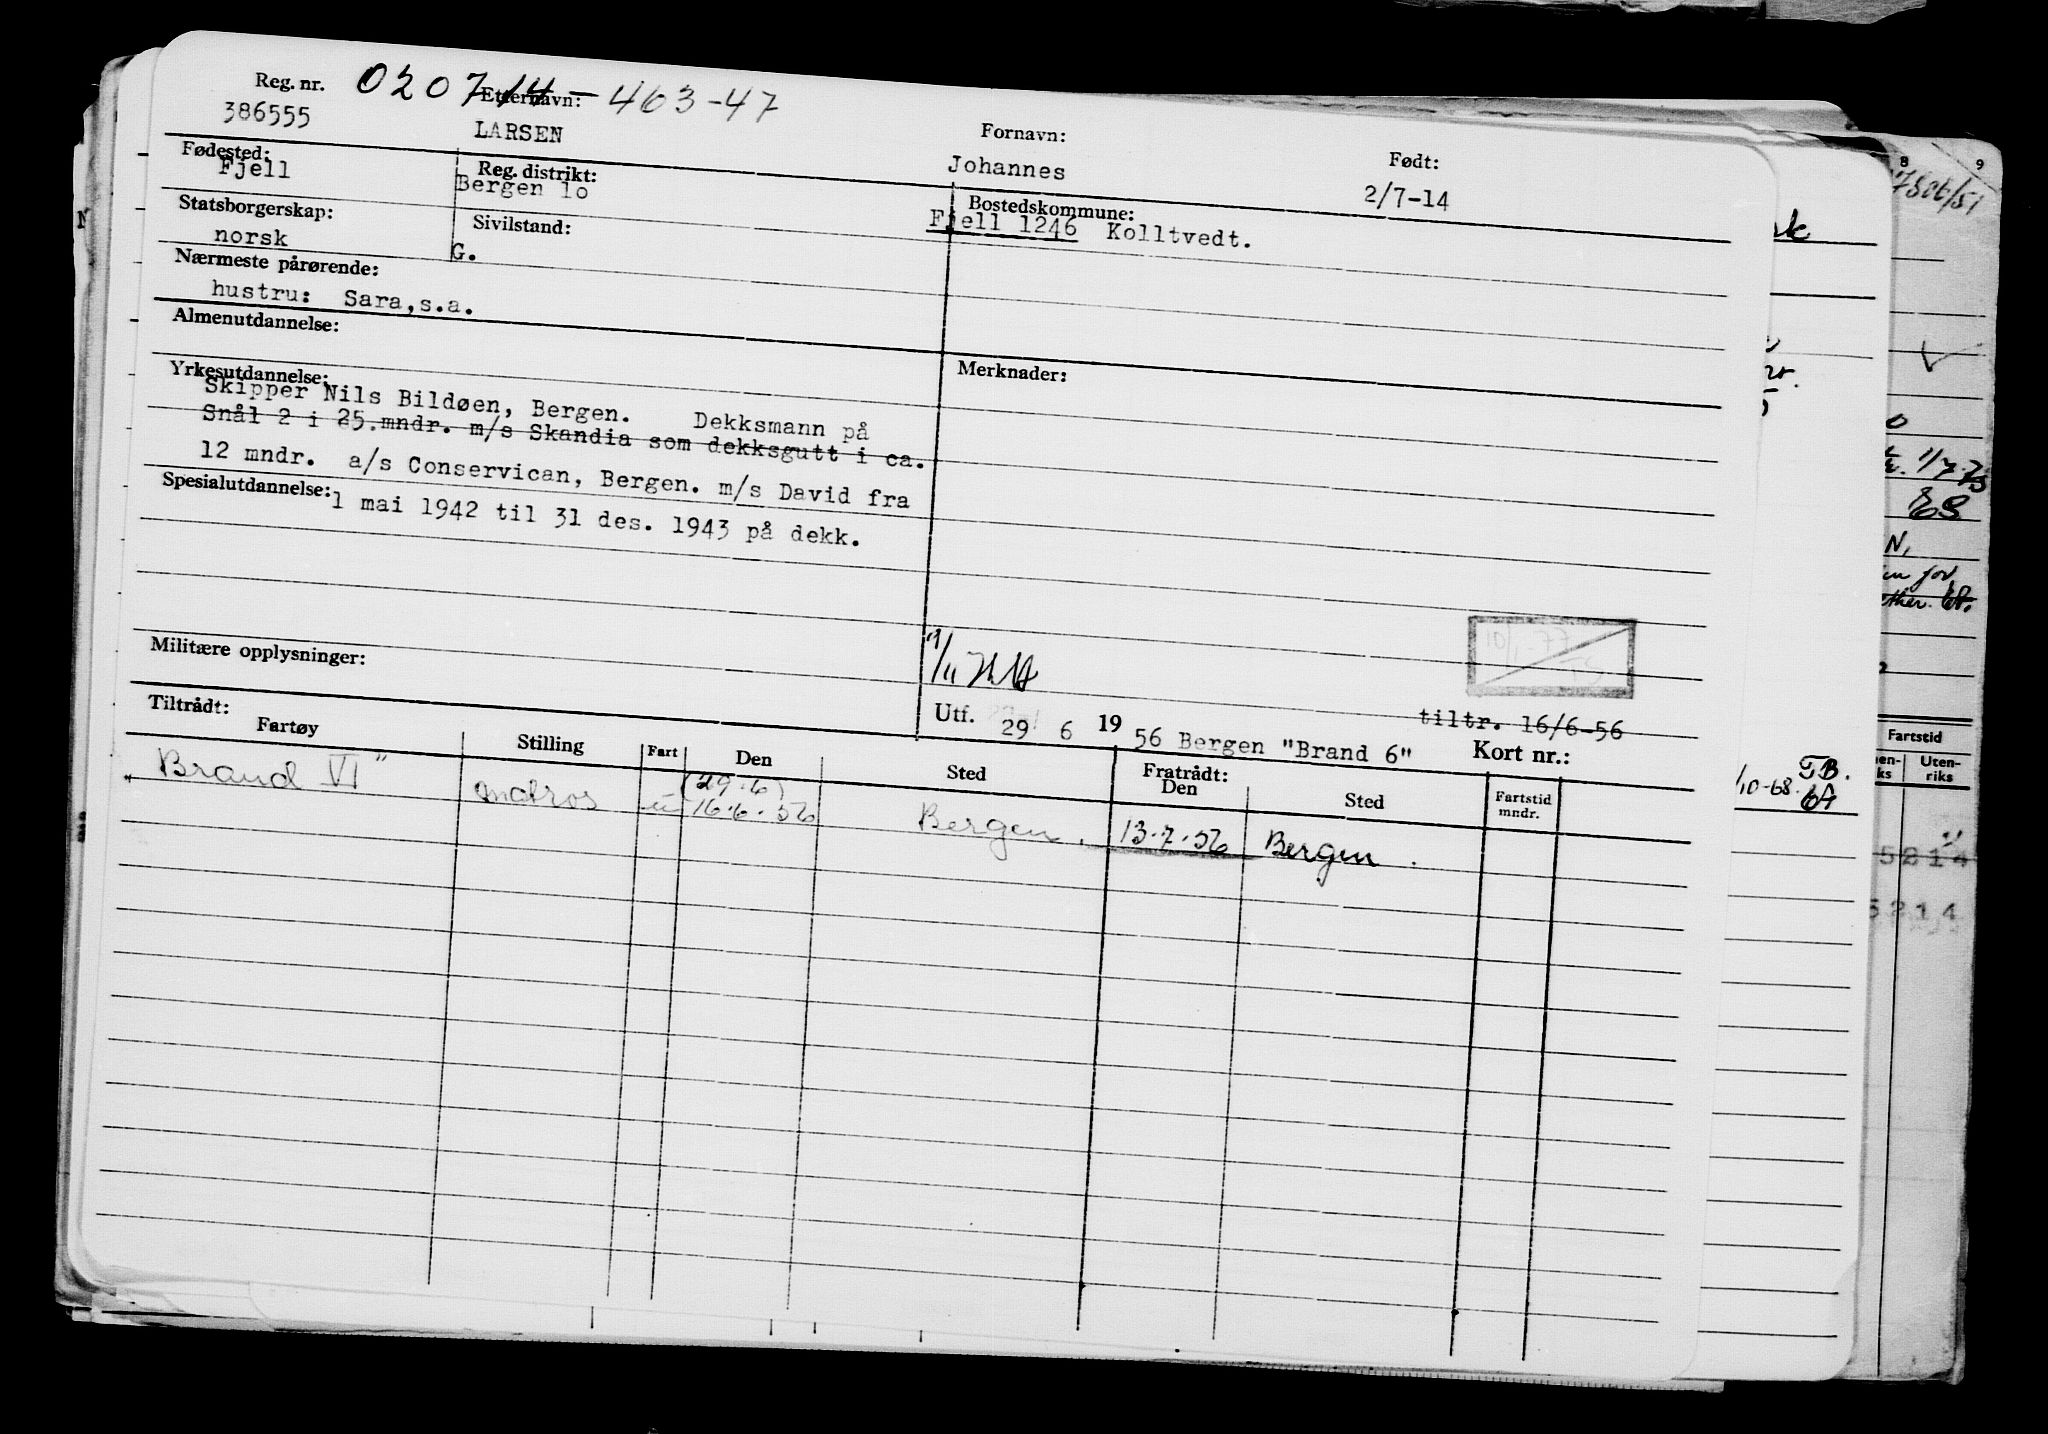 Reg. nr. 020714-463-47
386555
Etternavn:
LARSEN
Fornavn:
Johannes
Født:
2/7-14
Fødested:
Fjell
Reg. distrikt:
Bergen lo
Bostedskommune:
Fjell 1246 Kolltvedt.
Statsborgerskap:
norsk
Sivilstand:
G.
Nærmeste pårørende:
hustru: Sara,s.a.
Almenutdannelse:
Yrkesutdannelse:
Skipper Nils Bildøen, Bergen. Dekksmann på
Snål 2 i 25.mndr. m/s Skandia som dekksgutt i ca.
12 mndr. a/s Conservican, Bergen. m/s David fra
Spesialutdannelse:
1 mai 1942 til 31 des. 1943 på dekk.
Merknader:
Militære opplysninger:
10/1-77
tiltr. 16/6-56
Utf. 29 6 1956 Bergen "Brand 6" Kort nr.:
Tiltrådt:
Fartøy Stilling Fart Den Sted Fratrådt: Den Sted Fartstid mndr.
"Brand VI" matros u (29.6)
16.6.56 Bergen. 13.7.56 Bergen.
8 9
7806/51
1/7-75
N,
for
Fartstid
Uten-
riks
10-68. T.B.
5214
5214